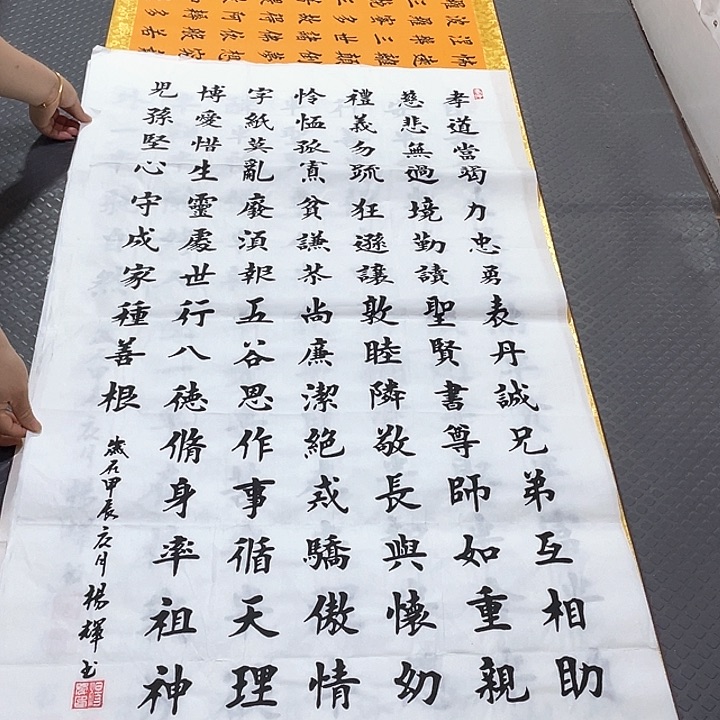 孝道當竭力忠勇表丹誠兄弟互相助
慈悲無過境勤讀聖賢書尊師如重親
禮義勿疏狂遜讓敦睦隣敬長與懷幼
怜恤孤寡貧謙恭尚廉潔絕戒驕傲情
字紙莫亂廢須報五谷恩作事循天理
博愛惜生靈處世行八德脩身率祖神
児孫堅心守成家種善根
歲在甲辰 月楊輝书